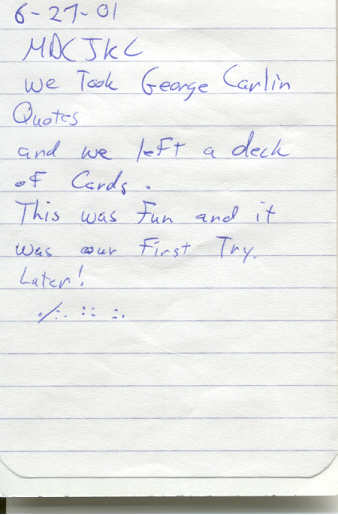 6-27-01
MDCJKC
We Took George Carlin
Quotes
and we left a deck
of Cards.
This was Fun and it
was our First Try.
Later!